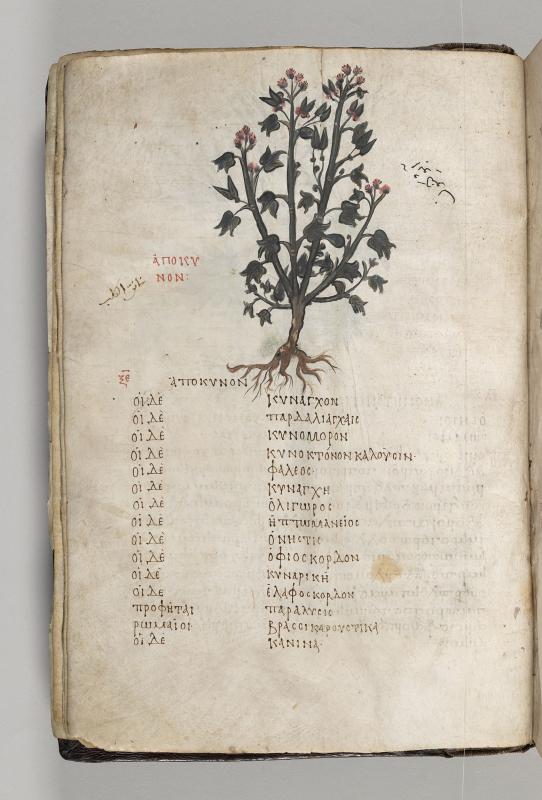 ἀποκυ
νον:
ξε
ἀπόκυνον
οἱ δὲ κυνάγχον
οἱ δὲ παρδαλιαγχὲς
οἱ δὲ κυνόμορον
οἱ δὲ κυνοκτόνον καλοῦσιν·
οἱ δὲ φάλεος·
οἱ δὲ κυνάγχη
οἱ δὲ ὀλίγωρος
οἱ δὲ
οἱ δὲ ὄνηστις
οἱ δὲ ὀφιοσκορδον
οἱ δὲ κυναρικὴ
οἱ δὲ ἐλαφοσκορδον
προφῆται παράλυσις
ρωμαῖοι βρασσικαρουστικα
οἱ δὲ κανίνα·